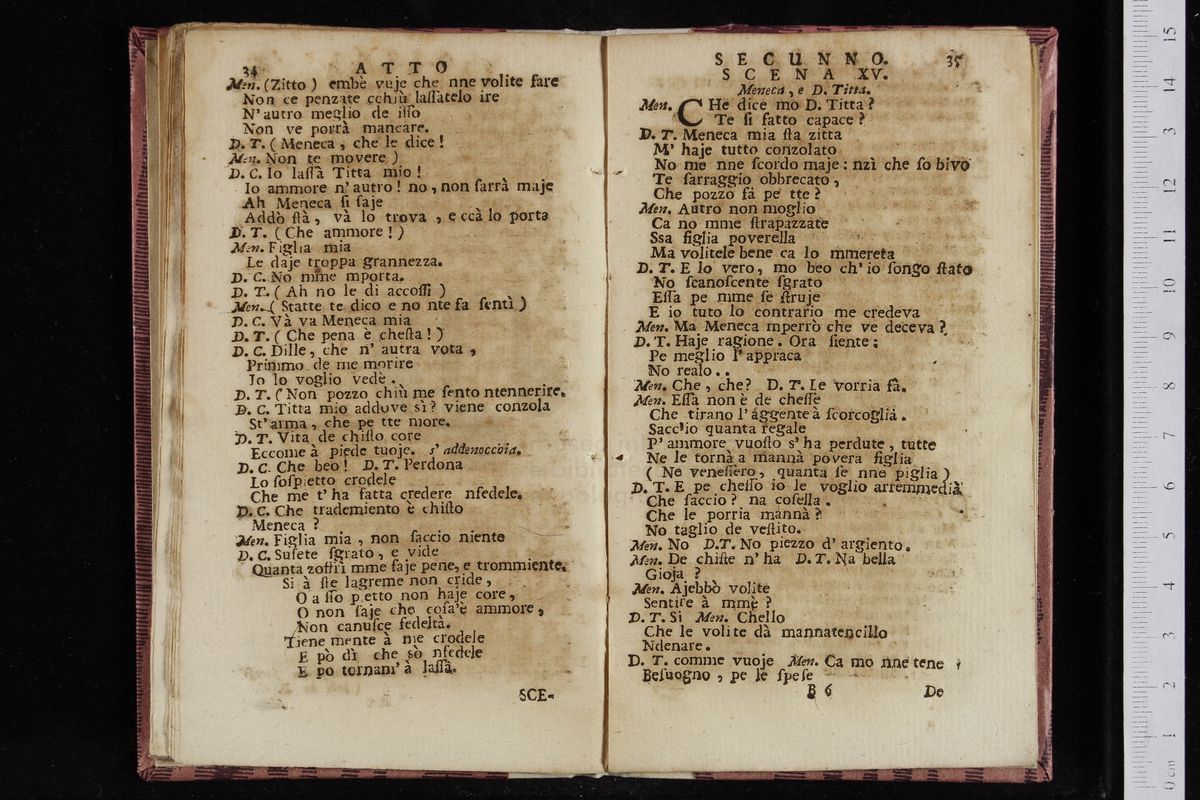 34 ATTO
Men. (Zitto) embè vuje che nne volite fare
Non ce penzate cchiù laſſatelo ire
N' autro meglio de iſſo
Non ve porrà mancare.
D. T. (Meneca, che le dice!
Men. Non te movere)
D. C. Io laſſà Titta mio!
Io ammore n' autro! no, non ſarrà maje
Ah Meneca ſi ſaje
Addò ſtà, và lo trova, e ccà lo porta
D. T. (Che ammore!)
Men. Figlia mia
Le daje troppa grannezza.
D. C. No mme mporta.
D. T. (Ah no le di accoſſì)
Men. (Statte te dico e no nte fa ſentì)
D. C. Và va Meneca mia
D. T. (Che pena è cheſta!)
D. C. Dille, che n' autra vota,
Primmo de me morire
Io lo voglio vedè.
D. T. (Non pozzo chiù me ſento ntennerire.
D. C. Titta mio adduve sì? viene conzola
St' arma, che pe tte more.
D. T. Vita de chiſto core
Eccome à piede tuoje. s' addenocchia.
D. C. Che beo! D. T. Perdona
Lo ſoſpietto crodele
Che me t' ha fatta credere nfedele.
D. C. Che trademiento è chiſto
Meneca?
Men. Figlia mia, non ſaccio niente
D. C. Suſete ſgrato, e vide
Quanta zoffrì mme faje pene, e trommiente.
Si à ſte lagreme non cride,
O a ſſo pietto non haje core,
O non ſaje che coſa'è ammore,
Non canuſce fedeltà.
Tiene mente à me crodele
E pò dì che sò nfedele
E po tornam' à laſſà.
SCE-
SECUNNO. 35
SCENA XV.
Meneca, e D. Titta.
Men. CHe dice mo D. Titta?
Te ſi fatto capace?
D. T. Meneca mia ſta zitta
M' haje tutto conzolato
No me nne ſcordo maje: nzì che ſo bivo
Te ſarraggio obbrecato,
Che pozzo fà pe tte?
Men. Autro non moglio
Ca no mme ſtrapazzate
Ssa figlia poverella
Ma volitele bene ca lo mmereta
D. T. E lo vero, mo beo ch' io ſongo ſtato
No ſcanoſcente ſgrato
Eſſa pe mme ſe ſtruje
E io tuto lo contrario me credeva
Men. Ma Meneca mperrò che ve deceva?
D. T. Haje ragione. Ora ſiente:
Pe meglio l' appraca
No realo..
Men. Che, che? D. T. Le vorria fà.
Men. Eſſa non è de cheſſe
Che tirano l' aggente à ſcorcoglià.
Sacc'io quanta regale
P' ammore vuoſto s' ha perdute, tutte
Ne le tornà a mannà povera figlia
(Ne veneſſero, quanta ſe nne piglia)
D. T. E pe cheſſo io le voglio arremmedià
Che ſaccio? na coſella.
Che le porria mannà?
No taglio de veſtito.
Men. No D.T. No piezzo d' argiento.
Men. De chiſte n' ha D. T. Na bella
Gioja?
Men. Ajebbò volite
Sentire à mmè?
D. T. Si Men. Chello
Che le volite dà mannatencillo
Ndenare.
D. T. comme vuoje Men. Ca mo nne tene
Beſuogno, pe le ſpeſe
B 6 De